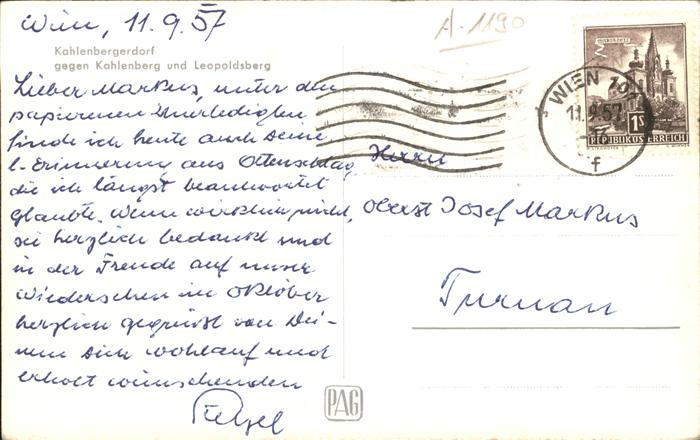 Wien, 11.9.57
A-1190
Kahlenbergerdorf
gegen Kahlenberg und Leopoldsberg
Lieber Markus, unter den
papierenen Unerledigten
finde ich heute auch Deine
l. Erinnerung aus Ottenschlag,
die ich längst beantwortet
glaubte. Wenn wirklich nicht,
sei herzlich bedankt und
in der Freude auf unser
Wiedersehen im Oktober
herzlich gegrüßt von Dei-
nem Dich wohlauf und
erholt wünschenden
Herrn
Oberst Josef Markus
Turnau
WIEN 101
11.9.57
f
MARIAZELL
1S
REPUBLIK OSTERREICH
PAG